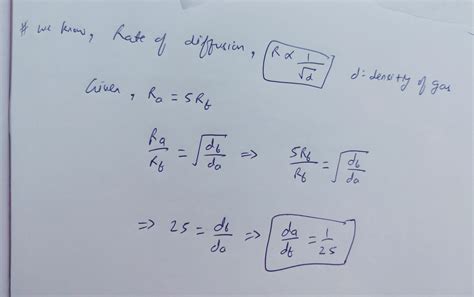 # We know, Rate of diffusion, R ∝ 1/√d d: density of gas
Given, Ra = 5Rb
Ra/Rb = √(db/da) => 5Rb/Rb = √(db/da)
=> 25 = db/da => da/db = 1/25